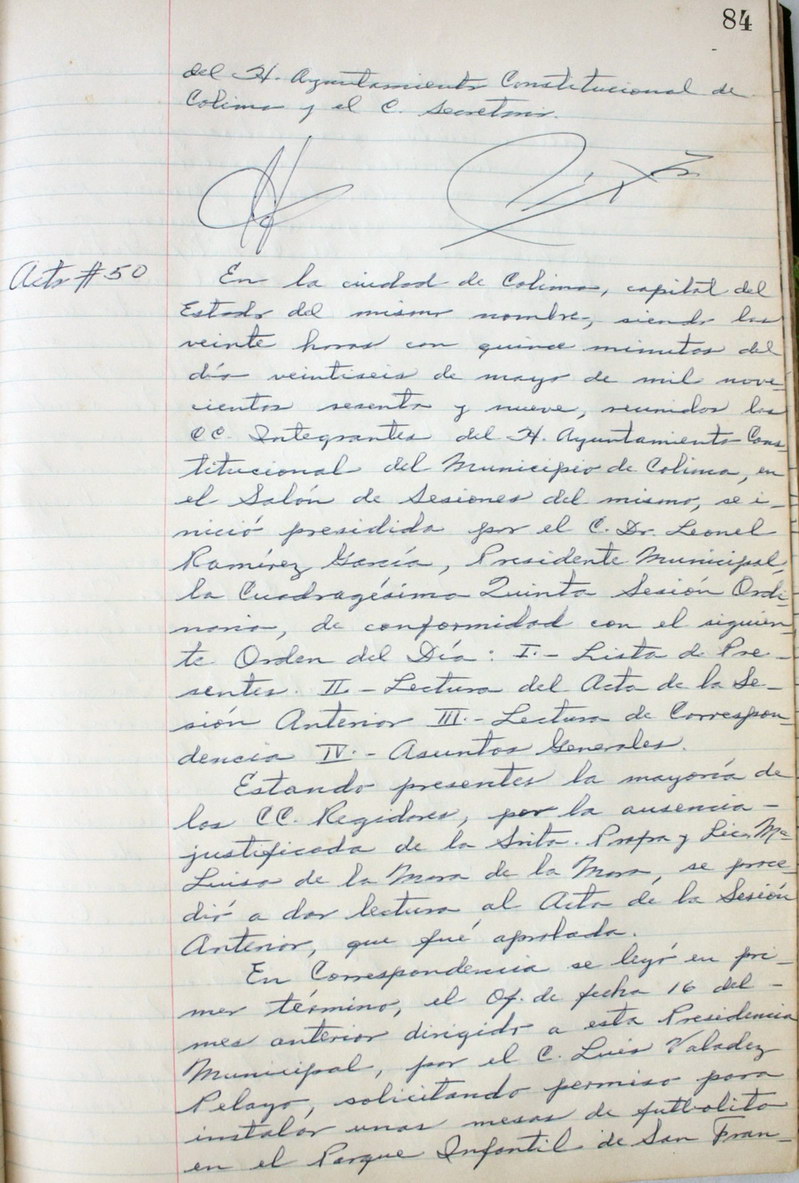 84
del H. Ayuntamiento Constitucional de
Colima y el C. Secretario.
Acta #50
En la ciudad de Colima, capital del
Estado del mismo nombre, siendo las
veinte horas con quince minutos del
día veintiseis de mayo de mil nove-
cientos sesenta y nueve, reunidos los
CC. Integrantes del H. Ayuntamiento Cons-
titucional del Municipio de Colima, en
el Salón de Sesiones del mismo, se i-
nició presidida por el C. Dr. Leonel
Ramírez García, Presidente Municipal,
la Cuadragésima Quinta Sesión Ordi-
naria, de conformidad con el siguien-
te Orden del Día: I.- Lista de Pre-
sentes. II.- Lectura del Acta de la Se-
sión Anterior III.- Lectura de Correspon-
dencia IV.- Asuntos Generales.
Estando presentes la mayoría de
los CC. Regidores, por la ausencia -
justificada de la Srita. Profa y Lic. Ma
Luisa de la Mora de la Mora, se proce-
dió a dar lectura al Acta de la Sesión
Anterior, que fué aprobada.
En Correspondencia se leyó en pri-
mer término, el Of. de fecha 16 del -
mes anterior dirigido a esta Presidencia
Municipal, por el C. Luis Valadez
Pelayo, solicitando permiso para
instalar unas mesas de futbolito
en el Parque Infantil de San Fran-